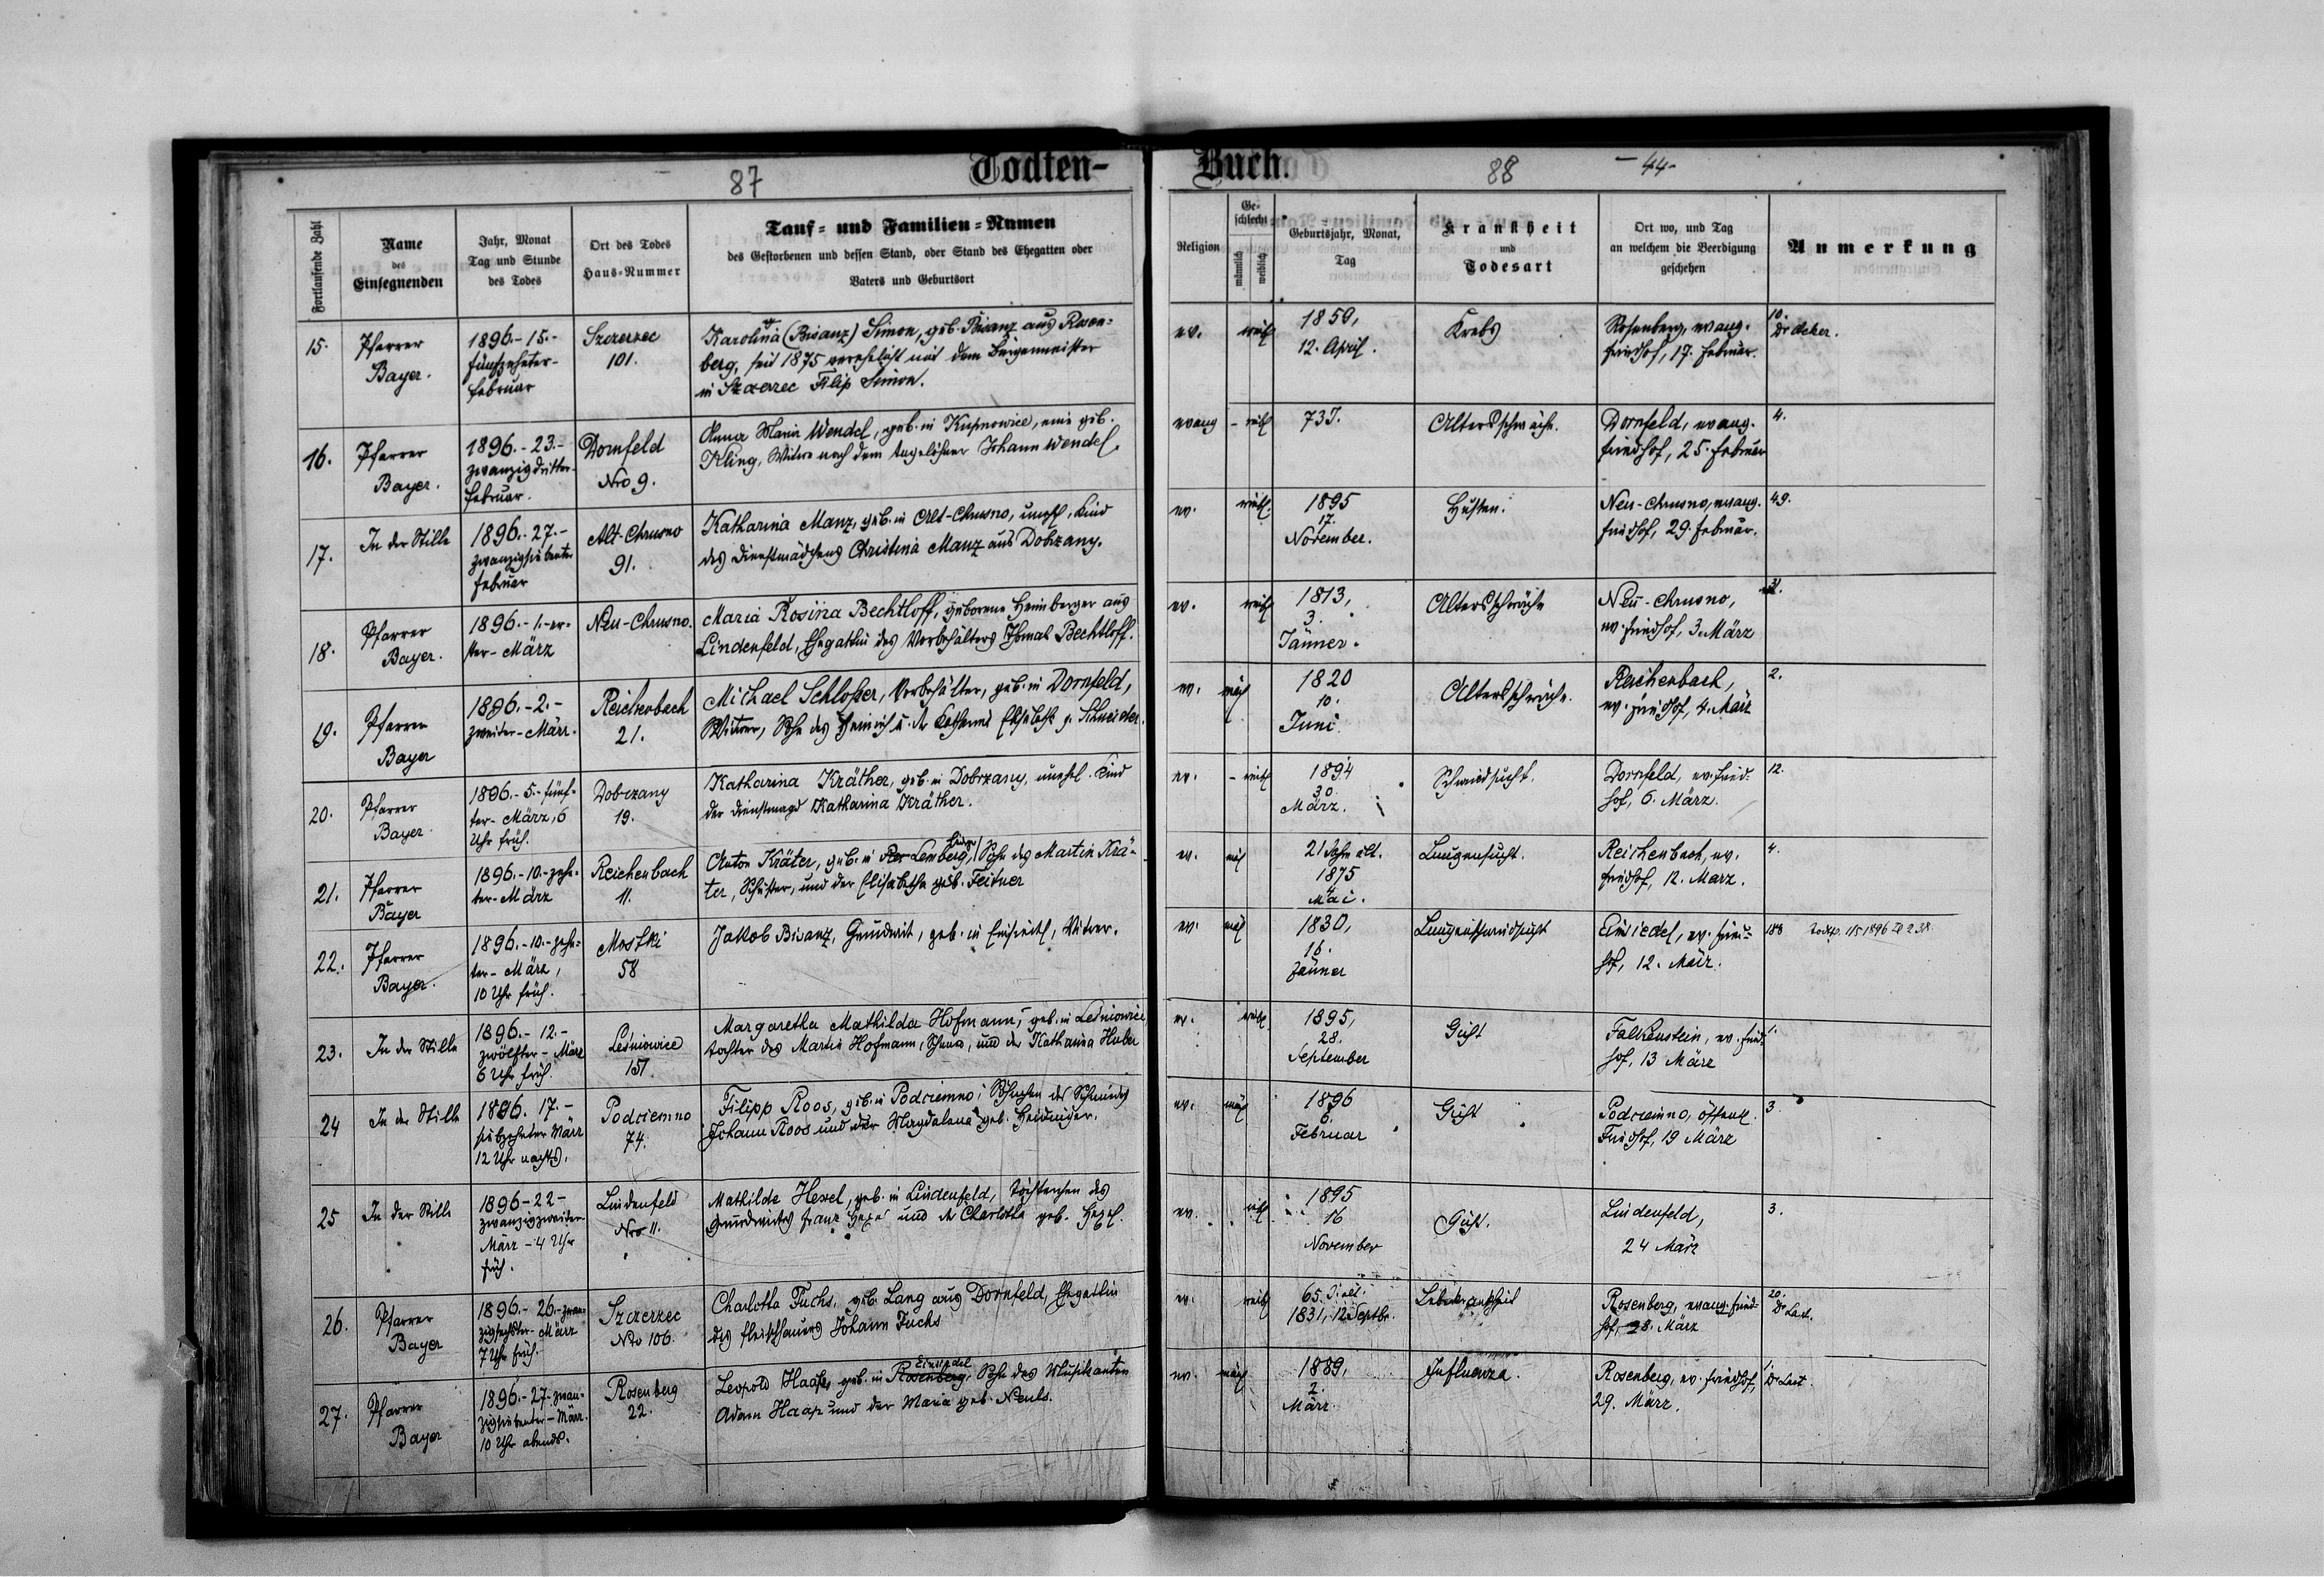 Todten-
Buch.
87
88
-44-
Fortlaufende Zahl
Name
des
Einsegnenden
Jahr, Monat
Tag und Stunde
des Todes
Ort des Todes
Haus-Nummer
Tauf- und Familien-Namen
des Gestorbenen und dessen Stand, oder Stand des Ehegatten oder
Vaters und Geburtsort
Religion
Ge-
schlecht
männlich
weiblich
Geburtsjahr, Monat,
Tag
Krankheit
und
Todesart
Ort wo, und Tag
an welchem die Beerdigung
geschehen
Anmerkung
15.
Pfarrer
Bayer.
1896.-15.-
fünfzehnter-
Februar
Szczerzec
101.
Karolina (Bisanz) Simon, geb. Bisanz aus Rosen-
berg, seit 1875 verehelicht mit dem Bürgermeister
in Szczerzec Filip Simon.
ev.
weibl
1859,
12. April.
Krebs
Rosenberg, evang.
Friedhof, 17. Februar.
10.
16.
Pfarrer
Bayer.
1896.-23.-
zwanzigdritter-
Februar.
Dornfeld
Nro 9.
Anna Maria Wendel, geb. in Kuhnowice, eine geb.
Kling, Witwe nach dem Tagelöhner Johann Wendel.
evang
- weibl
73 J.
Altersschwäche.
Dornfeld, evang.
Friedhof, 25. Februar
4.
17.
In der Stille
1896.-27.-
zwanzigsiebenter
Februar
Alt-Chrusno
91.
Katharina Manz, geb. in Alt-Chrusno, unehl. Kind
des Dienstmädchens Christina Manz aus Dobrzany.
ev.
weibl.
1895
17.
November.
Husten.
Neu-Chrusno, evang.
Friedhof, 29. Februar.
49.
18.
Pfarrer
Bayer.
1896.-1.-er-
ster-März
Neu-Chrusno.
Maria Rosina Bechtloff, geborene Heimberger aus
Lindenfeld, Ehegattin des Vorbehälters Bechtloff.
ev.
weibl
1813,
3.
Jänner.
Altersschwäche
Neu-Chrusno,
ev. Friedhof, 3. März
19.
Pfarrer
Bayer
1896.-2.-
zweiter-März.
Reichenbach
21.
Michael Schloßer, Vorbehälter, geb. in Dornfeld,
Witwer, Sohn des Heinrich u. der Katharina Elisabeth g. Schneider.
ev.
mänl
1820
10.
Juni.
Altersschwäche.
Reichenbach,
ev. Friedhof, 4. März
2.
20.
Pfarrer
Bayer
1896.-5.-fünf-
ter-März, 6
Uhr früh.
Dobrzany
19.
Katharina Kräther, geb. in Dobrzany, unehel. Kind
der Dienstmagd Katharina Kräther.
ev.
- weibl
1894
30.
März.
Schwindsucht.
Dornfeld, ev. Fried-
hof, 6. März.
12.
21.
Pfarrer
Bayer
1896.-10.-zehn-
ter-März
Reichenbach
11.
Anton Kräter, geb. in Lemberg, Sohn des Martin Krä-
ter, Schuster, und der Elisabetha geb. Feitner
ev.
mänl
21 Jahre alt.
1875
4
Mai.
Lungensucht.
Reichenbach, ev.
Friedhof, 12. März.
4.
22.
Pfarrer
Bayer.
1896.-10.-zehn-
ter-März,
10 Uhr früh.
Mostki
58
Jakob Bisanz, Grundwirt, geb. in Einsiedl, Witwer.
ev.
mänl
1830,
16.
Jänner
Lungenschwindsucht
Einsiedel, ev. Fried-
hof, 12. März.
188
23.
In der Stille
1896.-12.-
zwölfter-März
6 Uhr früh.
Leśniowice
157.
Margaretha Mathilda Hofmann, geb. in Leśniowice
Tochter des Martin Hofmann, Schmied, und der Katharina Huber
ev.
weibl
1895,
28.
September
Gicht
Falkenstein, ev. Fried-
hof, 13 März
1.
24
In der Stille
1896. 17.-
siebzehnter März
12 Uhr nachts.
Podciemno
74.
Filipp Roos, geb. in Podciemno, Söhnchen des Schmiedes
Johann Roos und der Magdalena geb. Heidniger.
ev.
mänl
1896
6.
Februar
Gicht
Podciemno, öffentl.
Friedhof, 19 März
3.
25
In der Stille
1896-22-
zwanzigzweiter-
März-4 Uhr
früh.
Lindenfeld
Nro 11.
Mathilde Hexel, geb. in Lindenfeld, Töchterchen des
Grundwirtes Franz Hexel und der Charlotte geb. Hexel.
ev.
weibl
1895
16
November
Gicht.
Lindenfeld,
24 März
3.
26.
Pfarrer
Bayer
1896.-26.-zwan-
zigsechster-März
7 Uhr früh.
Szczerzec
Nro 106.
Charlotta Fuchs, geb. Lang aus Dornfeld, Ehegattin
des Fleischhauers Johann Fuchs
ev.
weibl
65. J. alt.
1831, 12. Septbr.
Leberkrankheit
Rosenberg, evang. Fried-
hof, 28. März
20.
27.
Pfarrer
Bayer
1896.-27-zwan-
zigsiebenter-März.
10 Uhr abends.
Rosenberg
22.
Einsiedel
Leopold Haas, geb. in Rosenberg, Sohn des Musikanten
Adam Haas und der Maria geb.
ev.
mänl
1889,
2.
März.
Influenza.
Rosenberg, ev. Friedhof,
29. März.
1.